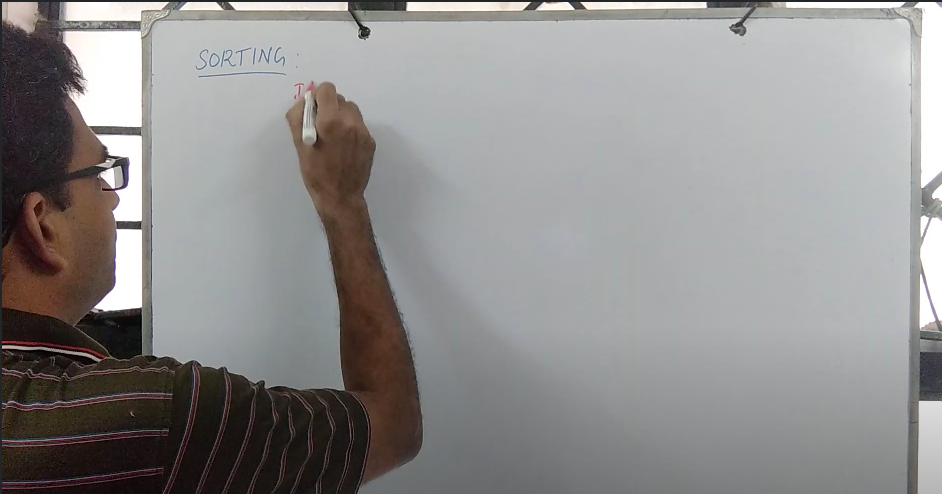 SORTING:
I